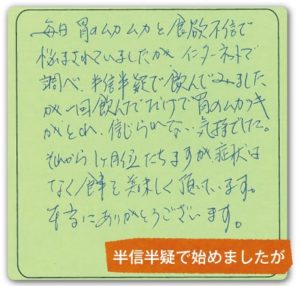 毎日胃のムカムカと食欲不信で
悩まされていましたが、インターネットで
調べ、半信半疑で飲んでみました
が一回飲んだだけで胃のムカツキ
がとれ、信じられない気持でした。
それから1ヶ月位たちますが症状は
なく食事も美味しく頂いています。
本当にありがとうございます。
半信半疑で始めましたが